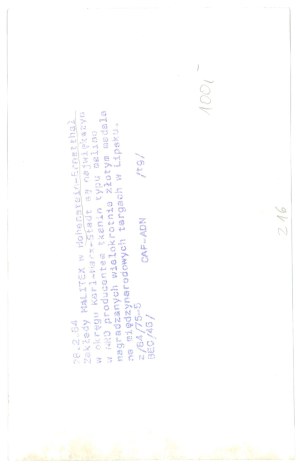 Zakłady MALITEX w Hohenstein-Ernstthal
w okręgu Karl-Marx-Stadt są największym
w NRD producentem tkanin typu
nagradzanych wielokrotnie złotym medalem
na międzynarodowych targach w Lipsku.
2/64/75-5 CAF-ADN /rg/
BEC/4G/
100,-
216